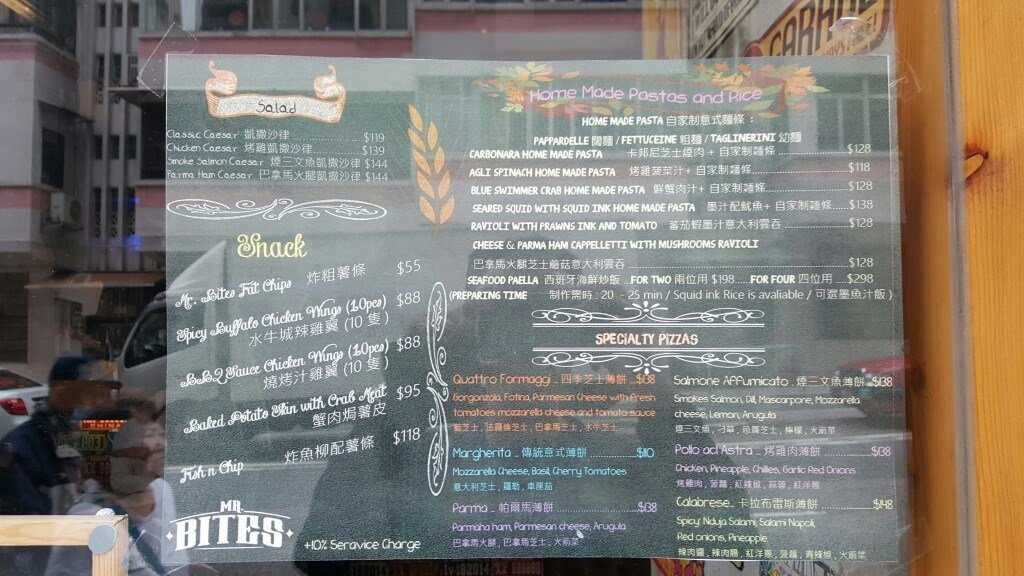 GARAGE
Salad
Classic Caesar 凱撒沙律 $119
Chicken Caesar 烤雞凱撒沙律 $139
Smoke Salmon Caesar 煙三文魚凱撒沙律 $144
Parma Ham Caesar 巴拿馬火腿凱撒沙律 $144
Snack
Mr. Bites Frit Chips 炸粗薯條 $55
Spicy Buffalo Chicken Wings (10pcs) $88
水牛城辣雞翼 (10 隻)
B.B.Q Sauce Chicken Wings (10pcs) $88
燒烤汁雞翼 (10 隻)
Baked Potato Skin with Crab Meat $95
蟹肉焗薯皮
Fish n Chip 炸魚柳配薯條 $118
MR.
BITES
+10% Seravice Charge
Home Made Pastas and Rice
HOME MADE PASTA 自家制意式麵條 :
PAPPARDELLE 闊麵 / FETTUCEINE 粗麵 / TAGLINERINI 幼麵
CARBONARA HOME MADE PASTA 卡邦尼芝士煙肉 + 自家制麵條 $128
AGLI SPINACH HOME MADE PASTA 烤雞菠菜汁 + 自家制麵條 $118
BLUE SWIMMER CRAB HOME MADE PASTA 鮮蟹肉汁 + 自家制麵條 $128
SEARED SQUID WITH SQUID INK HOME MADE PASTA 墨汁配魷魚 + 自家制麵條 $138
RAVIOLI WITH PRAWNS INK AND TOMATO 蕃茄蝦墨汁意大利雲吞 $128
CHEESE & PARMA HAM CAPPELLETTI WITH MUSHROOMS RAVIOLI
巴拿馬火腿芝士蘑菇意大利雲吞 $128
SEAFOOD PAELLA 西班牙海鮮炒飯 ...FOR TWO 兩位用 $198 .....FOR FOUR 四位用 ...$298
(PREPARING TIME 制作需時 : 20 - 25 min / Squid ink Rice is avaliable / 可選墨魚汁飯 )
SPECIALTY PIZZAS
Quattro Formaggi .. 四季芝士薄餅 ...$138
Gorgonzola, Fotina, Parmesan Cheese with fresh
tomatoes mozzarella cheese and tomato sauce
藍芝士 , 法羅倫芝士 , 巴拿馬芝士 , 水牛芝士
Margherita .. 傳統意式薄餅 $110
Mozzarella Cheese, Basil, Cherry Tomatoes
意大利芝士 , 羅勒 , 車厘茄
Parma .. 帕爾馬薄餅 $138
Parmaha ham, Parmesan cheese, Arugula
巴拿馬火腿 , 巴拿馬芝士 , 火箭菜
Salmone Affumicato . 煙三文魚薄餅 ..$138
Smokes Salmon, Dill, Mascarpone, Mozzarella
cheese, Lemon, Arugula
煙三文魚 , 刁草 , 忌廉芝士 , 檸檬 , 火箭菜
Pollo acl Astra .. 烤雞肉薄餅 $138
Chicken, Pineapple, Chillies, Garlic Red Onions
烤雞肉 , 菠蘿 , 紅辣椒 , 蒜蓉 , 紅洋蔥
Calabrese.. 卡拉布雷斯薄餅 $148
Spicy Nduja Salami, Salami Napoli,
Red onions, Pineapple
辣肉醬 , 辣肉腸 , 紅洋蔥 , 菠蘿 , 青辣椒 , 火箭菜